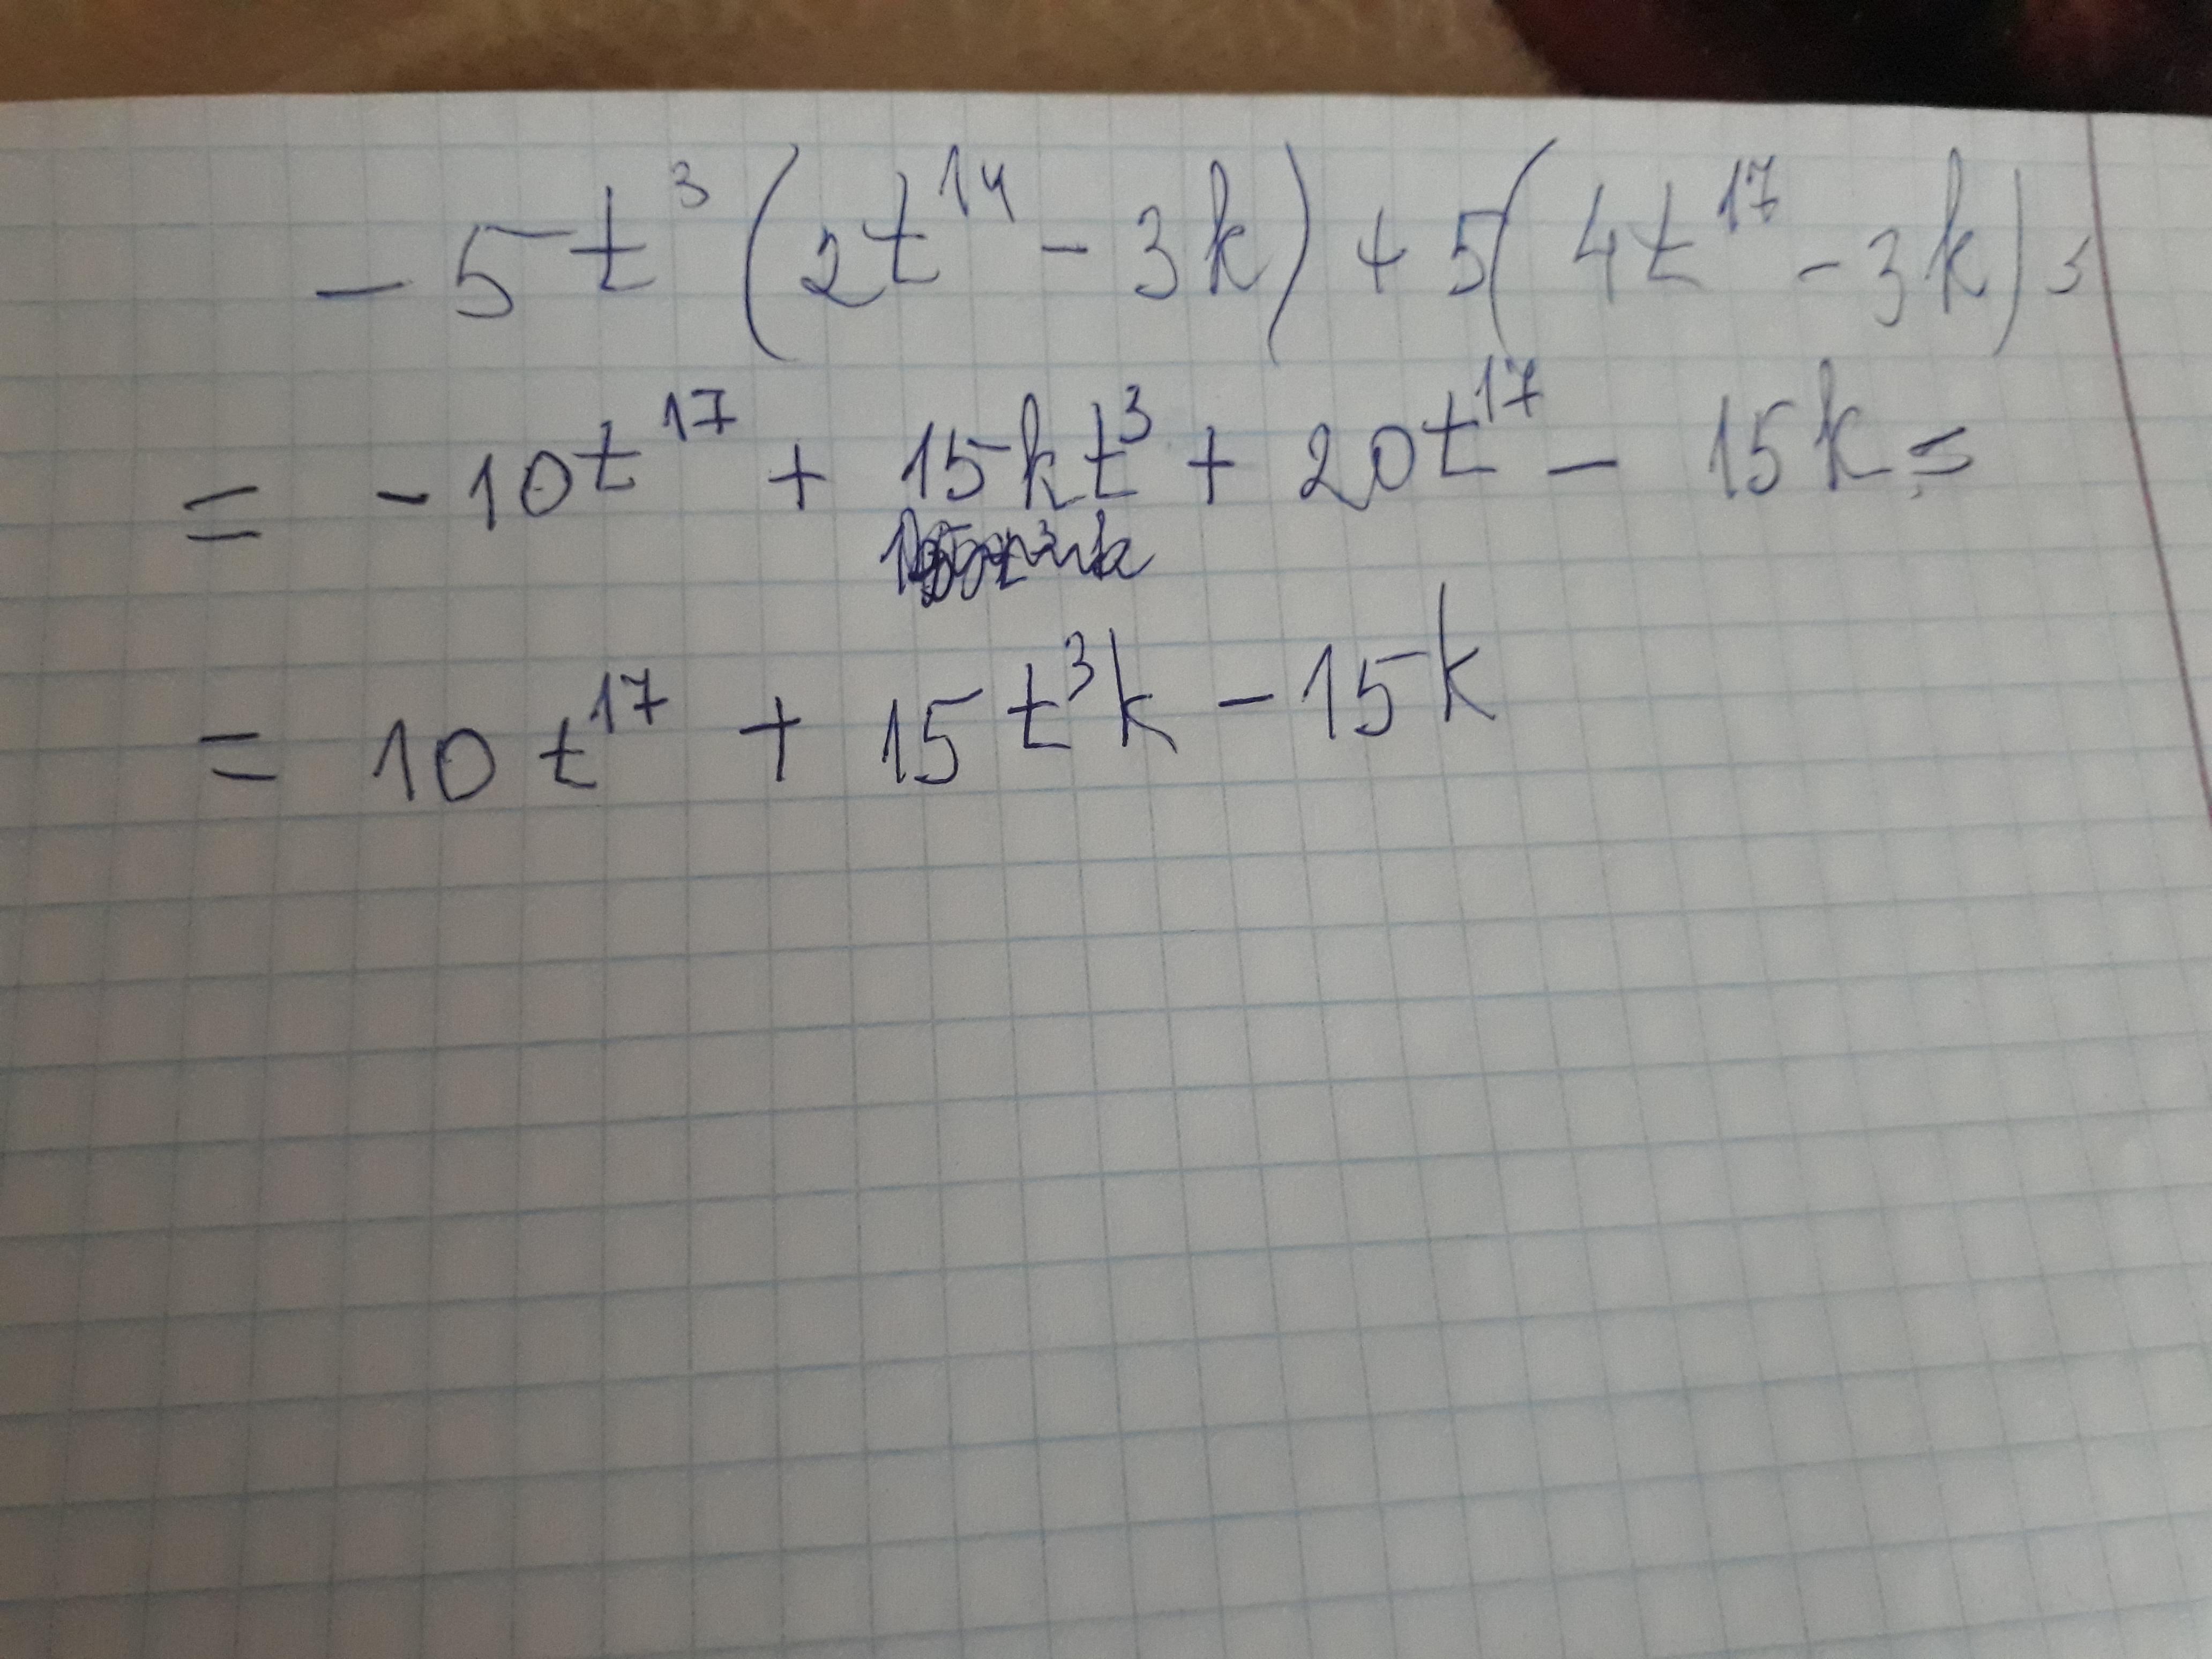 - 5t³ (2t¹⁴ - 3k) + 5(4t¹⁷ - 3k) =
= - 10t¹⁷ + 15kt³ + 20t¹⁷ - 15k =
= 10t¹⁷ + 15t³k - 15k